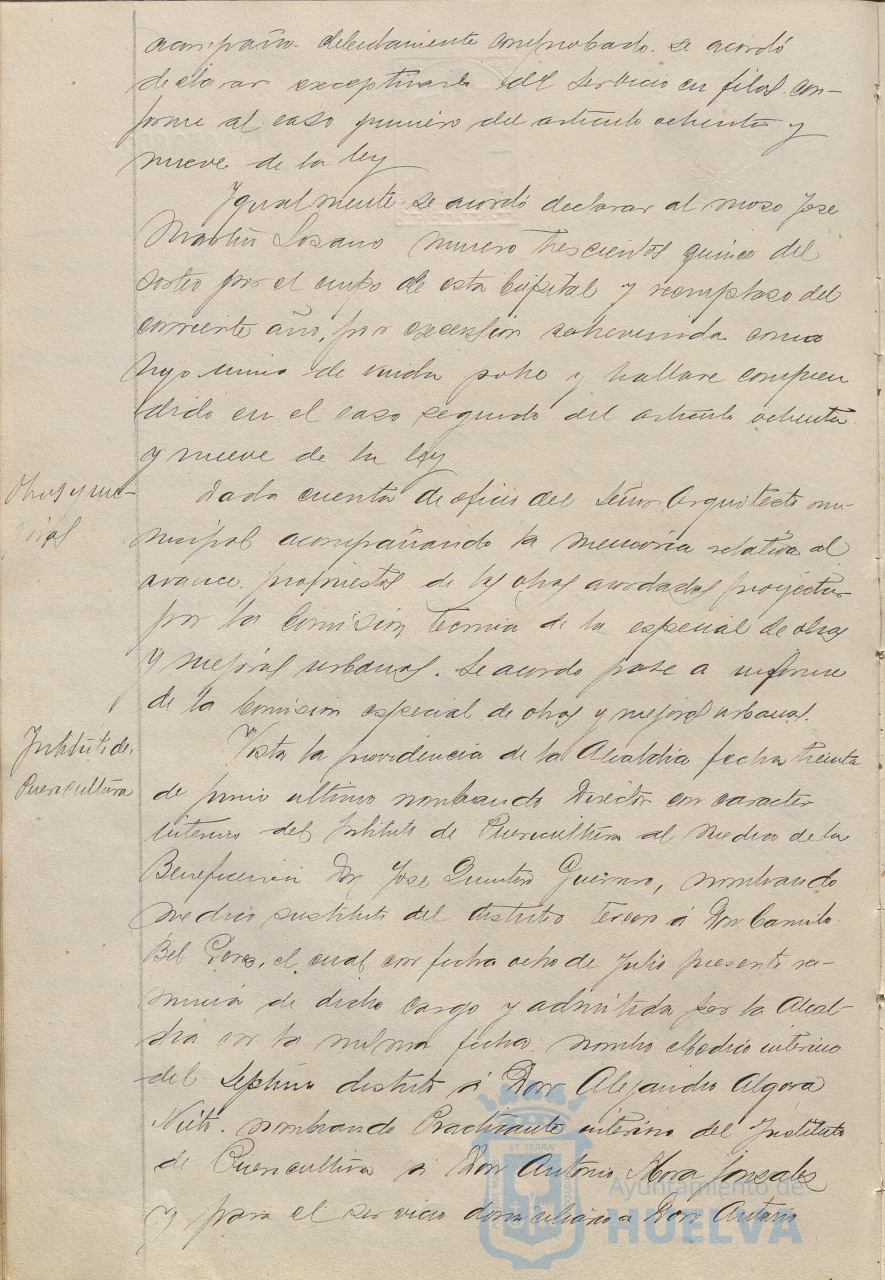 acompaña debidamente comprobado. se acordó
declarar exceptuarle del servicio en filas con-
forme al caso primero del artículo ochenta y
nueve de la ley
Igualmente se acordó declarar al mozo Jose
Martin Lozano numero trescientos quince del
sorteo por el cupo de esta Capital y reemplazo del
corriente año, por excepsión sobrevenida como
hijo unico de viuda pobre y hallarse compren
dido en el caso segundo del articulo ochenta
y nueve de la ley
Obras y me-
joras
Dada cuenta de oficio del Señor Arquitecto mu-
nicipal acompañando la memoria relativa al
avance propuestos de las obras acordadas proyectar
por la Comisión tecnica de la especial de obras
y mejoras urbanas. Se acordo pase a informe
de la Comision especial de obras y mejoras urbanas.
Instituto de
Puericultura
Vista la providencia de la Alcaldia fecha treinta
de junio ultimo nombrando Director con caracter
interino del Instituto de Puericultura al medico de la
Beneficencia Don Jose Quintero Guerrero, nombrando
medico sustituto del distrito tercero á Don Camilo
Bel, el cual con fecha ocho de Julio presentó re-
nuncia de dicho cargo y admitida por la Alcal-
dia con la misma fecha nombro Medico interino
del septimo distrito á Don Alejandro Algora
Nieto. nombrando Practicante interino del Instituto
de Puericultura á Don Antonio Mora Gonzalez
y para el servicio domiciliario a Don Antonio
ET TERRA
Ayuntamiento de
HUELVA